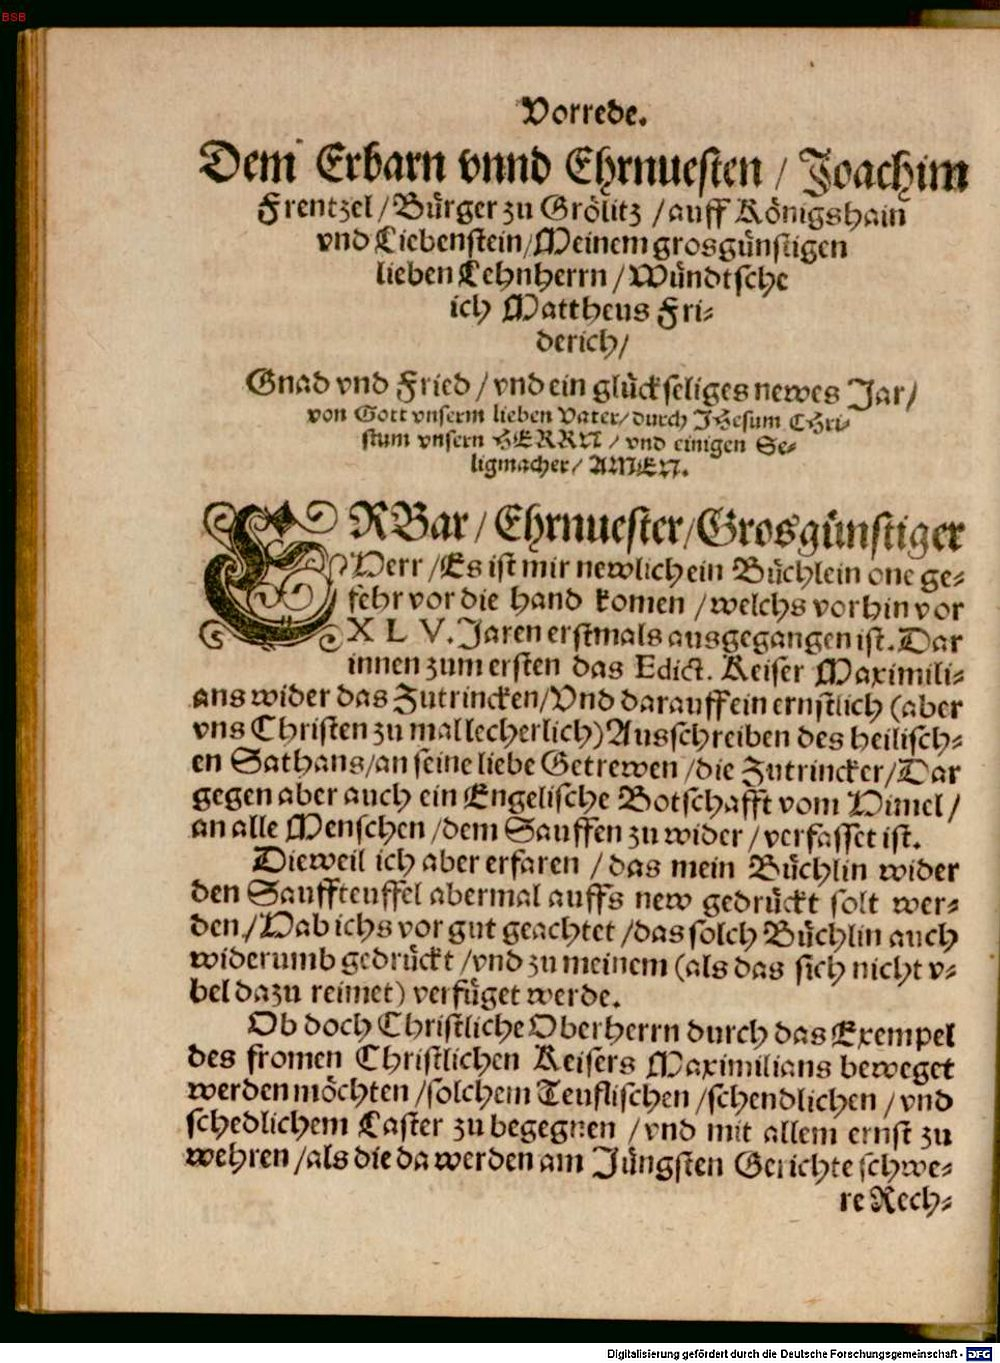 BSB
Vorrede.
Dem Erbarn vnnd Ehrnuesten / Joachim
Frentzel / Bürger zu Grölitz / auff Königshain
vnd Liebenstein / Meinem grosgünstigen
lieben Lehnherrn / Wündtsche
ich Mattheus Fri-
derich /
Gnad vnd Fried / vnd ein glückseliges newes Jar /
von Gott vnserm lieben Vater / durch JHesum CHri-
stum vnsern HERRN / vnd einigen Se-
ligmacher / AMEN.
ERBar / Ehrnuester / Grosgünstiger
Herr / Es ist mir newlich ein Büchlein one ge-
fehr vor die hand komen / welchs vorhin vor
XLV. Jaren erstmals ausgegangen ist. Dar
innen zum ersten das Edict. Keiser Maximili-
ans wider das Zutrincken / Vnd darauff ein ernstlich (aber
vns Christen zu mal lecherlich) Ausschreiben des hellisch-
en Sathans / an seine liebe Getrewen / die Zutrincker / Dar
gegen aber auch ein Engelische Botschafft vom Himel /
an alle Menschen / dem Sauffen zu wider / verfasset ist.
Dieweil ich aber erfaren / das mein Büchlin wider
den Sauffteuffel abermal auffs new gedrückt solt wer-
den / Hab ichs vor gut geachtet / das solch Büchlin auch
widerumb gedrückt / vnd zu meinem (als das sich nicht v-
bel dazu reimet) verfüget werde.
Ob doch Christliche Oberherrn durch das Exempel
des fromen Christlichen Keisers Maximilians beweget
werden möchten / solchem Teuflischen / schendlichen / vnd
schedlichem Laster zu begegnen / vnd mit allem ernst zu
wehren / als die da werden am Jüngsten Gerichte schwe-
re Rech-
Digitalisierung gefördert durch die Deutsche Forschungsgemeinschaft - DFG